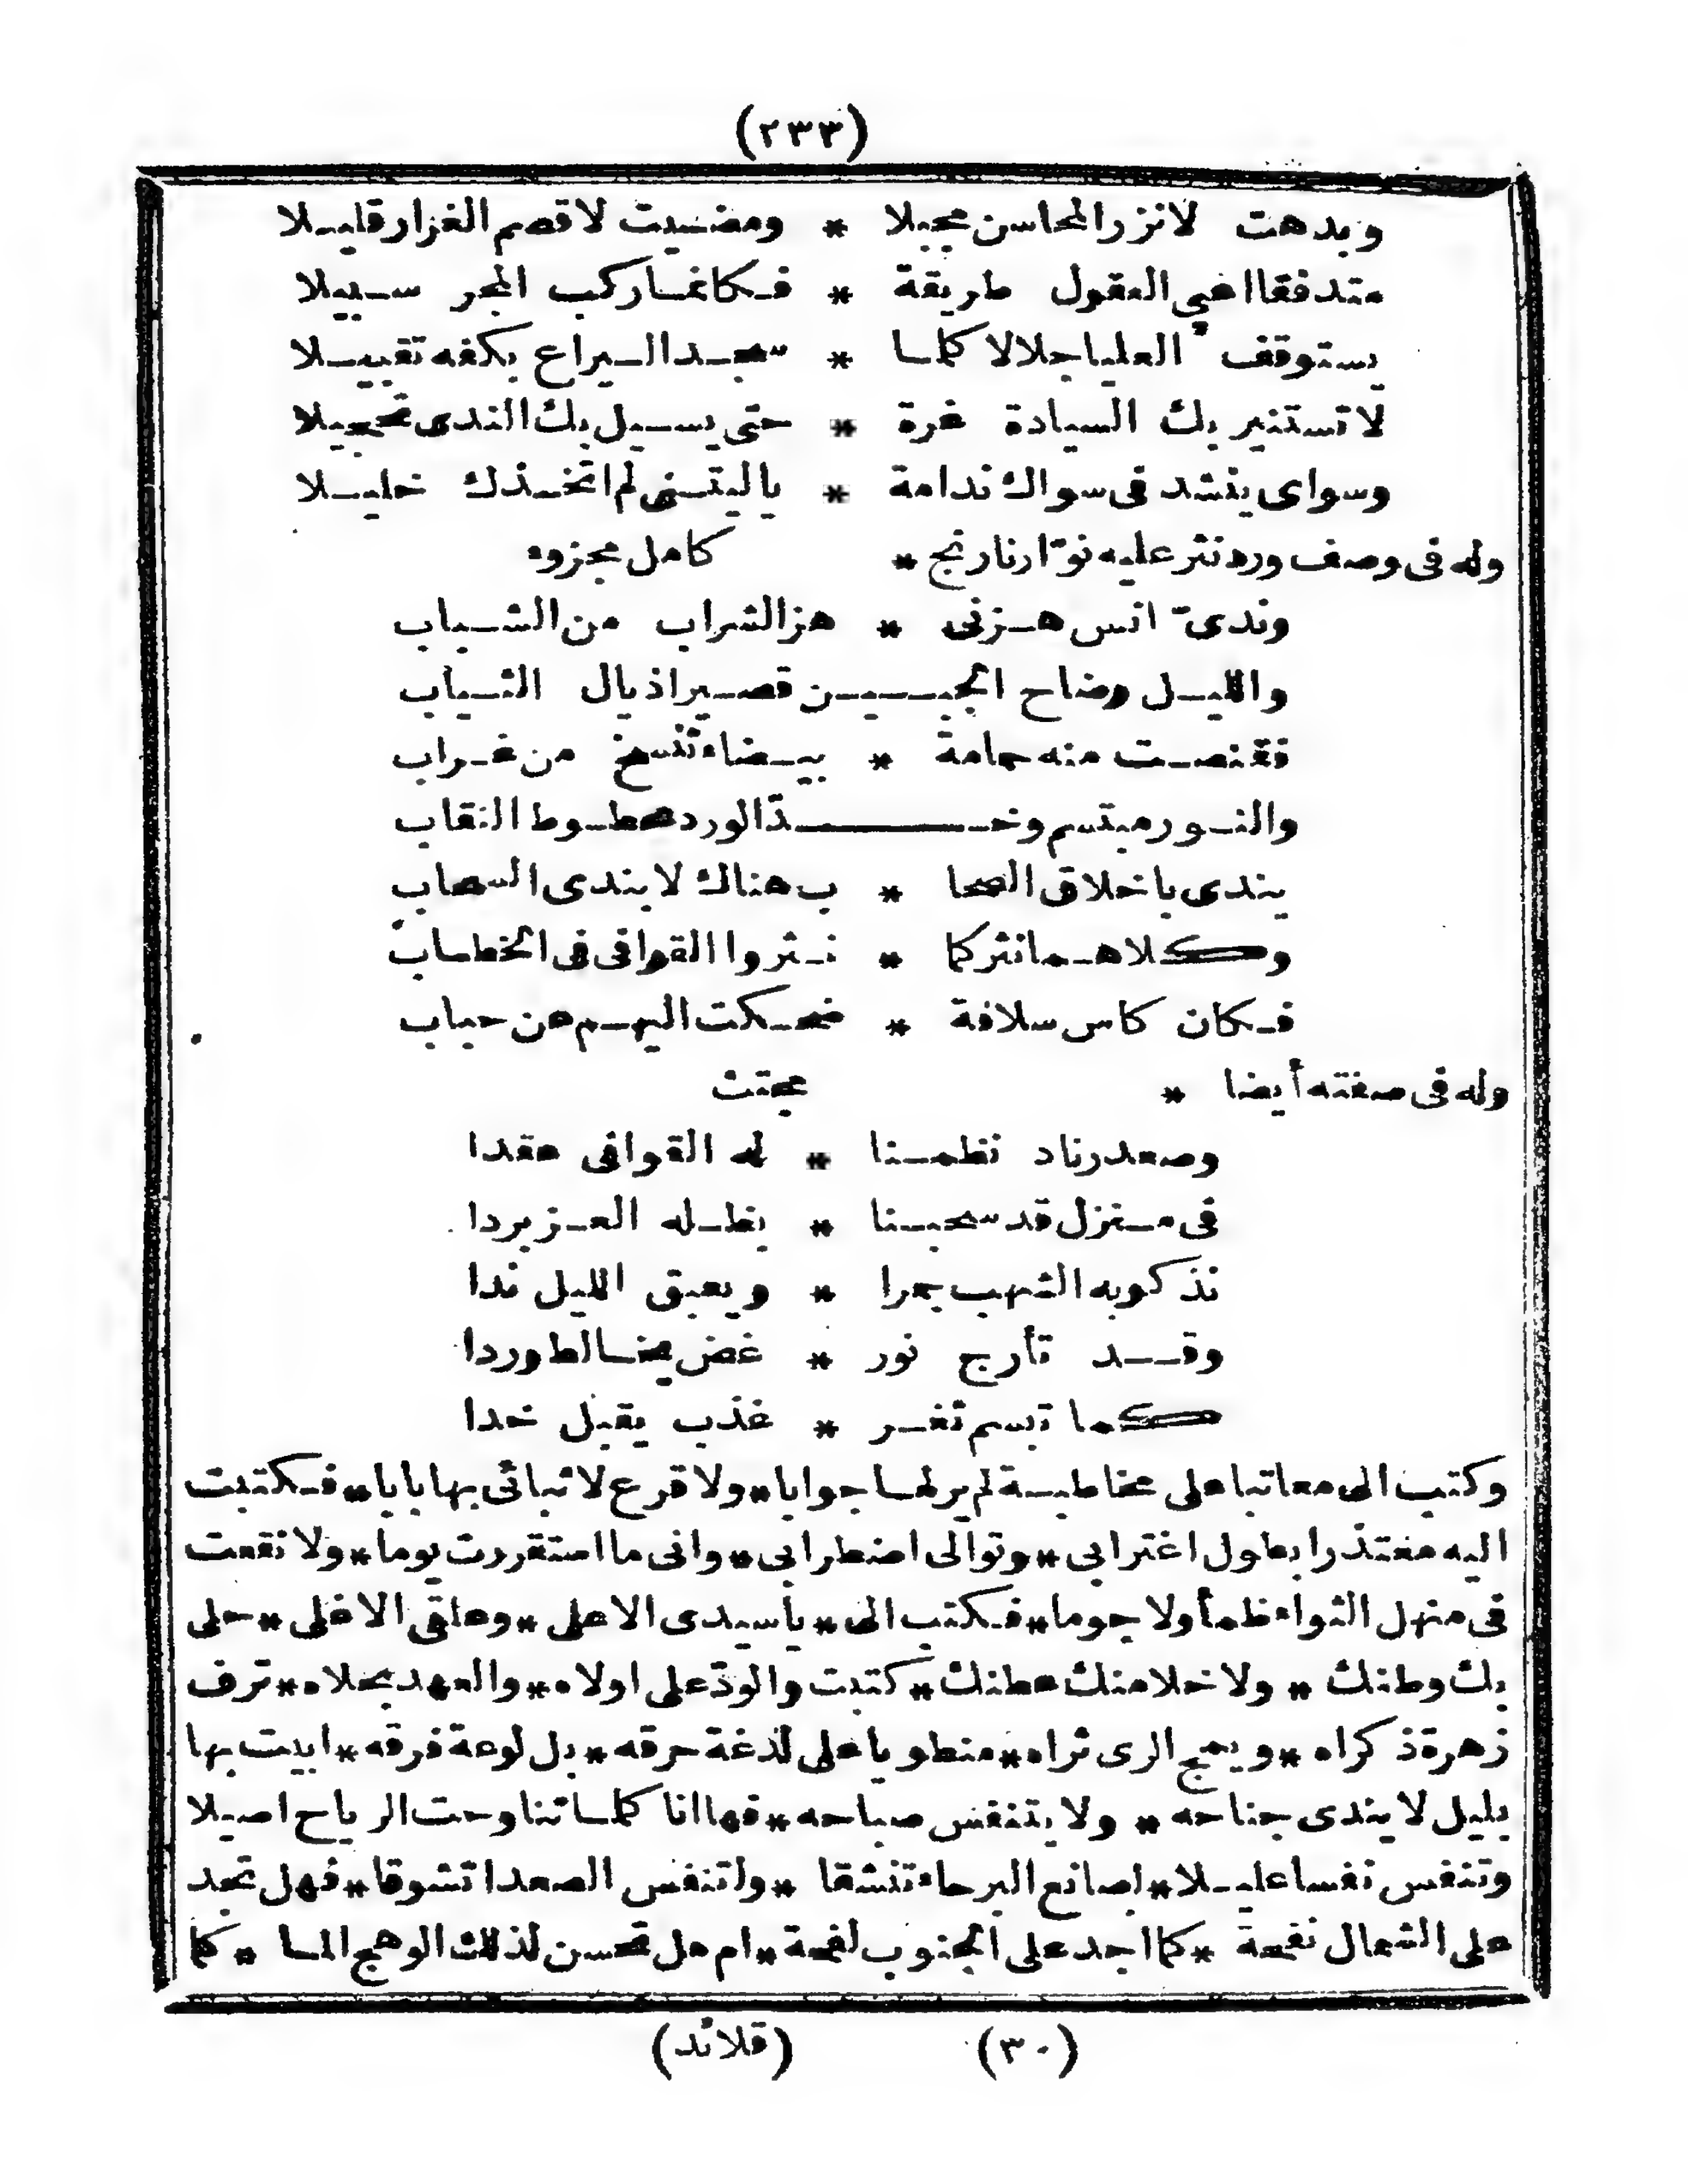 (٢٣٣)
وبدهت لا نزر المحاسن مجبلا * ومضيت لا قصم الغرار قليلا
متدفقا اعيي العقول طريقة * فكانما ركب المجر سبيلا
يستوقف العليا جلالا كلما * سجد اليراع بكفه تقبيلا
لا تستنير بك السيادة غرة * حتى يسيل بك الندى تحجيلا
وسواى ينشد فى سواك ندامة * ياليتنى لم اتخذك خليلا
وله فى وصف ورد نثر عليه نوّار نارنج * كامل مجزوء
وندىّ انس هزنى * هز الشراب من الشباب
والليل وضاح الجبين قصير اذيال الثياب
فقنصت منه حمامة * بيضاء تنسخ من غراب
والنور مبتسم وخدّ الورد محطوط النقاب
يندى باخلاق الصحا * ب هناك لا يندى السحاب
وكلاهما نثر كما * نثروا القوافى فى الخطاب
فكان كاس سلافة * ضحكت اليهم عن حباب
وله فى صفته أيضا * مجتث
وصدر ناد نظمنا * له القوافى عقدا
فى منزل قد سحبنا * بظله العز بردا
نذكو به الشهب جمرا * ويعبق الليل ندا
وقد تأرج نور * غض يخالط وردا
كما تبسم ثغر * عذب يقبل خدا
وكتب الى معاتبا على مخاطبة لم ير لها جوابا * ولا قرع لائبائى بها بابا * فكتبت
اليه معتذرا بطول اغترابى * وتوالى اضطرابى * وانى ما استقررت يوما * ولا نقعت
فى منهل الثواء ظمأ ولا حوما * فكتب الى * يا سيدى الاعلى * وعلقى الاغلى * حلى
بك وطنك * ولا خلا منك عطنك * كتبت والودّ على اولاه * والعهد بحلاه * ترف
زهرة ذكراه * ويمج الرى ثراه * منطويا على لدغة حرقه * بل لوعة فرقه * ابيت بها
بليل لا يندى جناحه * ولا يتنفس صباحه * فها انا كلما تناوحت الرياح اصيلا
وتنفس نفسا عليلا * اصانع البرحاء تنشقا * واتنفس الصعدا تشوقا * فهل تجد
على الشمال نفحة * كما اجد على الجنوب لفحة * ام هل تحسن لذلك الوهج الما * كما
(٣٠) (قلائد)